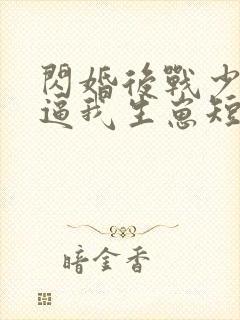 閃婚後戰少
逼我生崽短
暗金香